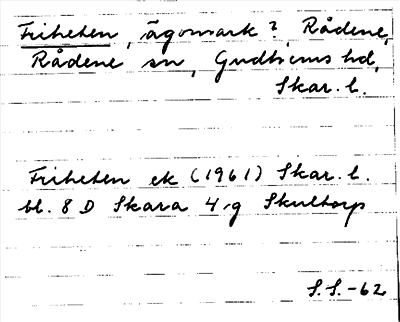 Friheten, ägomark?, Rådene,
Rådene sn, Gudhems hd,
Skar. l.
Friheten ek (1961) Skar. l.
bl. 8 D Skara 4 g Skultorp
S.S. -62